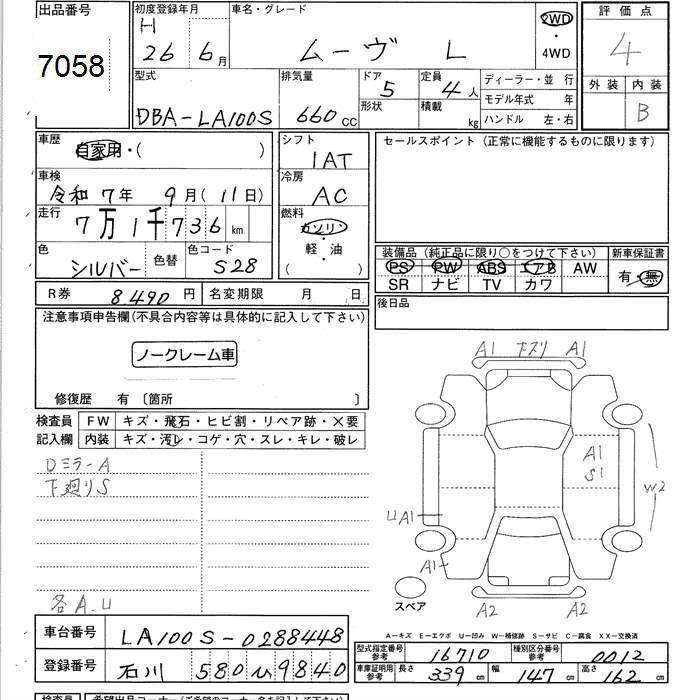 出品番号
7058
初度登録年月
H 26 年 6 月
車名・グレード
ムーヴ L
2WD
・
4WD
評価点
4
外装 内装
B
型式
DBA-LA100S
排気量
660 CC
ドア
5
形状
定員
4 人
積載
kg
ディーラー・並 行
モデル年式 年
ハンドル 左・右
車歴
自家用・( )
車検
令和 7年 9月(11日)
走行
7万1千736 km
色
シルバー
色替
色コード
S28
シフト
IAT
冷房
AC
燃料
ガソリン
・
軽・油
( )
セールスポイント(正常に機能するものに限ります)
装備品(純正品に限り○をつけて下さい)
PS PW ABS エアB AW
SR ナビ TV カワ
新車保証書
有・無
後日品
R券 8490 円
名変期限 月 日
注意事項申告欄(不具合内容等は具体的に記入して下さい)
ノークレーム車
修復歴 有 〔箇所 〕
検査員
記入欄
FW キズ・飛石・ヒビ割・リペア跡・×要
内装 キズ・汚レ・コゲ・穴・スレ・キレ・破レ
Dミラー A
下廻りS
各A.U
A1 下スリ A1
A1
S1
W2
UA1
A1
A2 A2
スペア
A-キズ E-エクボ U-凹み W-補修跡 S-サビ C-腐食 XX-交換済
車台番号
LA100S-0288448
登録番号
石川 580 い 9840
型式指定番号
参考
16710
種別区分番号
参考
0012
車庫証明用
参考
長さ 339 cm
幅 147 cm
高さ 162 cm
検査員
希望出品コーナー(ご希望のコーナー名を記入して下さい)